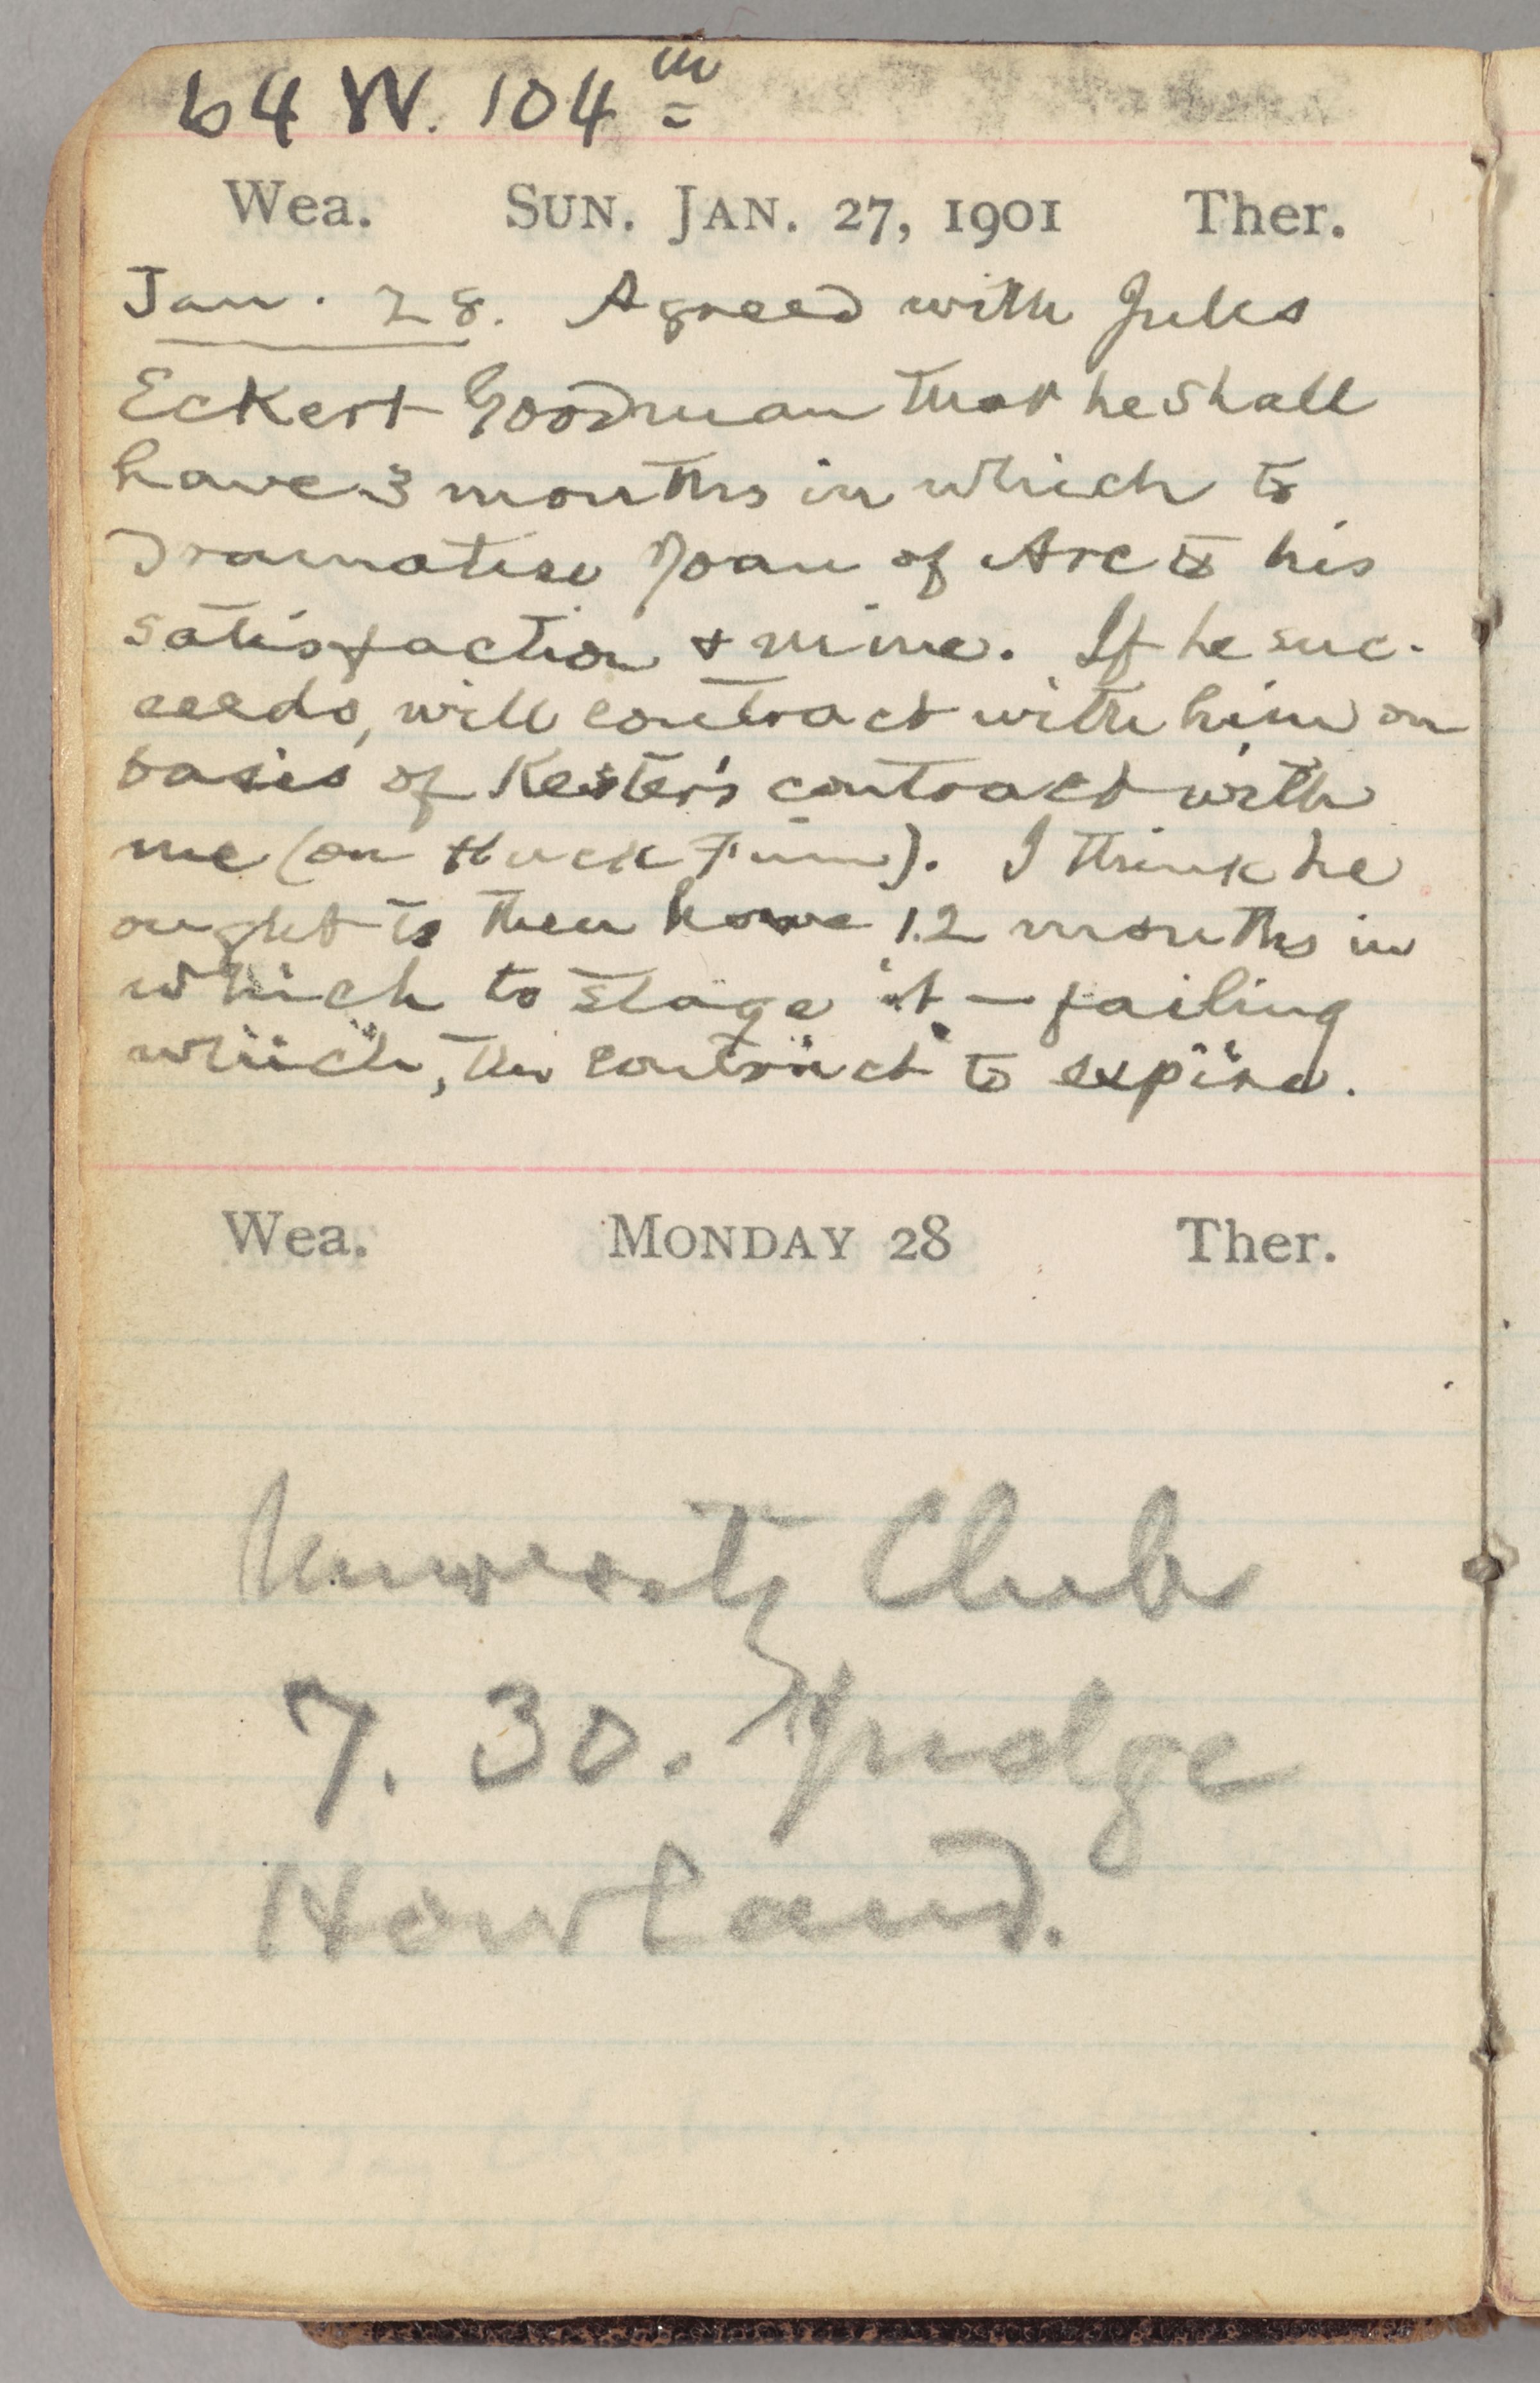 64 W. 104th
Wea. SUN. JAN. 27, 1901 Ther.
Jan. 28. Agreed with Jules
Eckert Goodman that he shall
have 3 months in which to
dramatise Joan of Arc to his
satisfaction & mine. If he suc-
ceeds, will contract with him on
basis of Kester's contract with
me (on Huck Finn). I think he
ought to then have 12 months in
which to stage it — failing
which, the contract to expire.
Wea. MONDAY 28 Ther.
University Club
7.30. Judge
Howland.